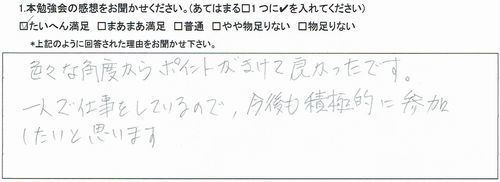 1.本勉強会の感想をお聞かせください。(あてはまる□1つに✔を入れてください)
☑たいへん満足 □まあまあ満足 □普通 □やや物足りない □物足りない
*上記のように回答された理由をお聞かせ下さい。
色々な角度からポイントがきけて良かったです。
一人で仕事をしているので、今後も積極的に参加
したいと思います